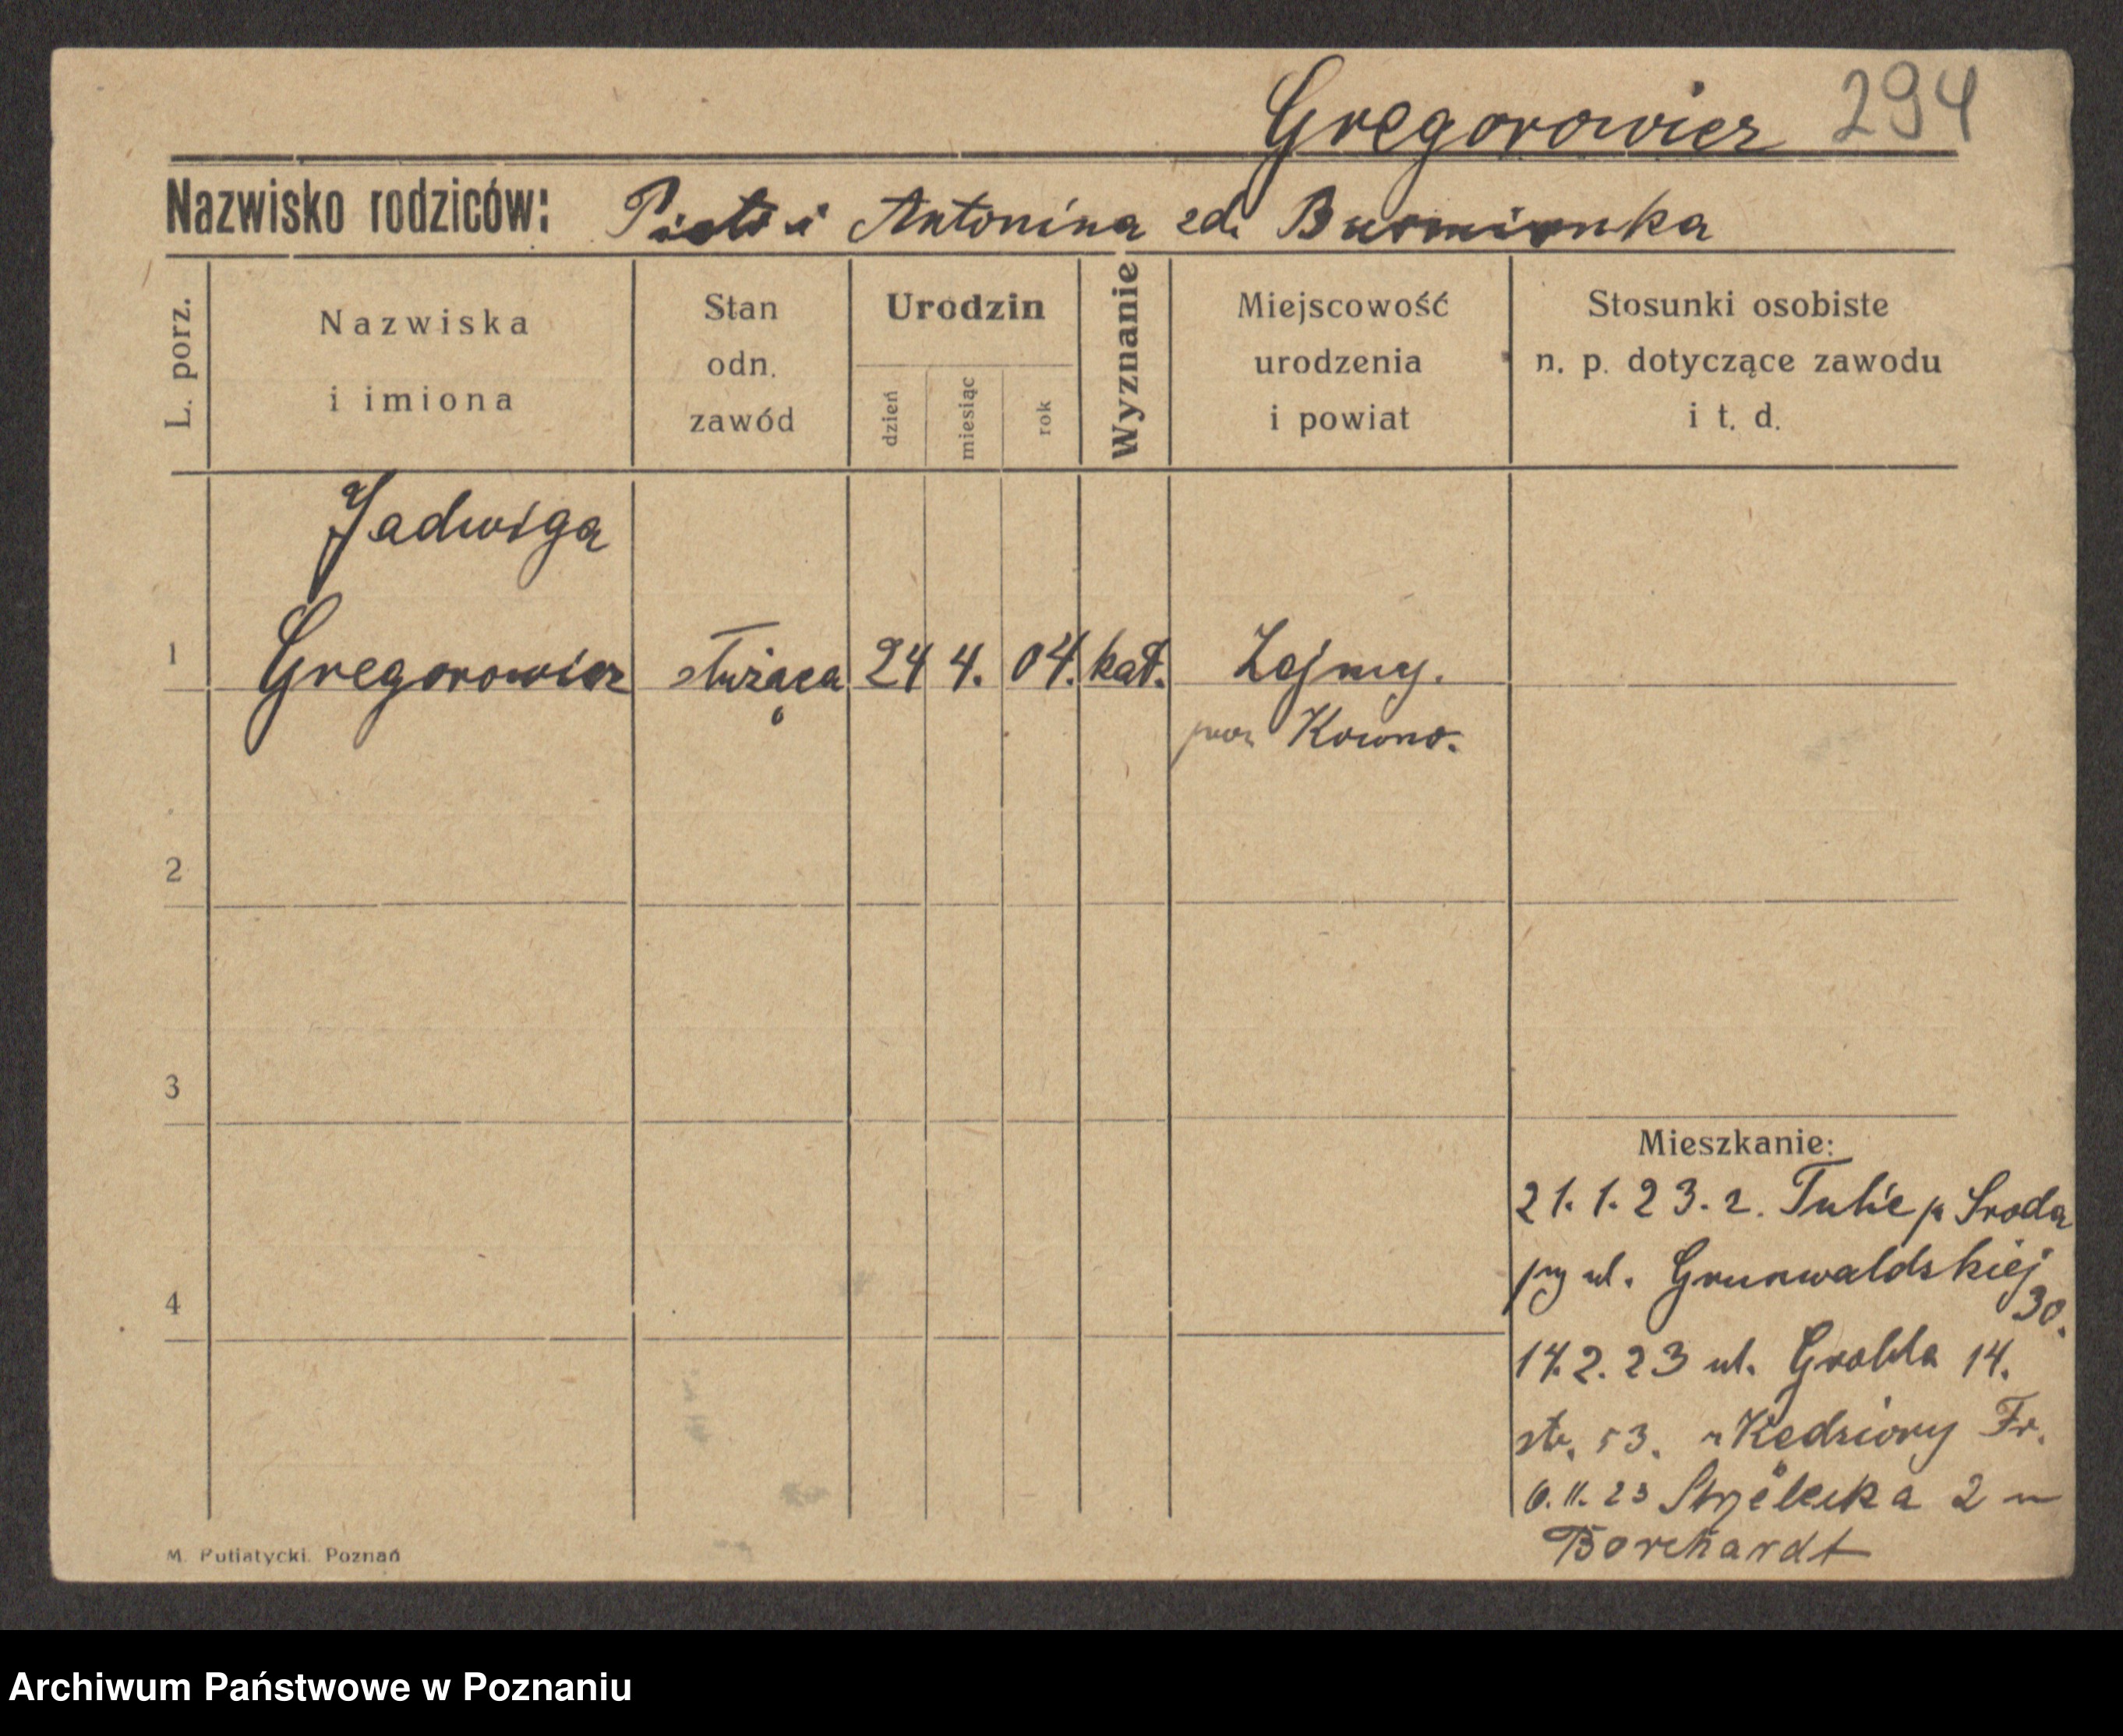 Gregorowicz 294
Nazwisko rodziców: Piotr i Antonina zd.
L. porz.
Nazwiska
i imiona
Stan
odn.
zawód
Urodzin
dzień
miesiąc
rok
Wyznanie
Miejscowość
urodzenia
i powiat
Stosunki osobiste
n. p. dotyczące zawodu
i t. d.
Jadwiga
1 Gregorowicz służąca 24 4. 04. kat. Żejmy.
pow Kowno.
2
3
4
Mieszkanie:
21. 1. 23. z. Tulie p Sroda
przy ul. Grunwaldskiej
30.
14. 2. 23 ul. Grobla 14.
str. 53. u Kędziory Fr.
6. 11. 23 Strzelecka 2 u
Borchardt
M. Putiatycki. Poznań
Archiwum Państwowe w Poznaniu